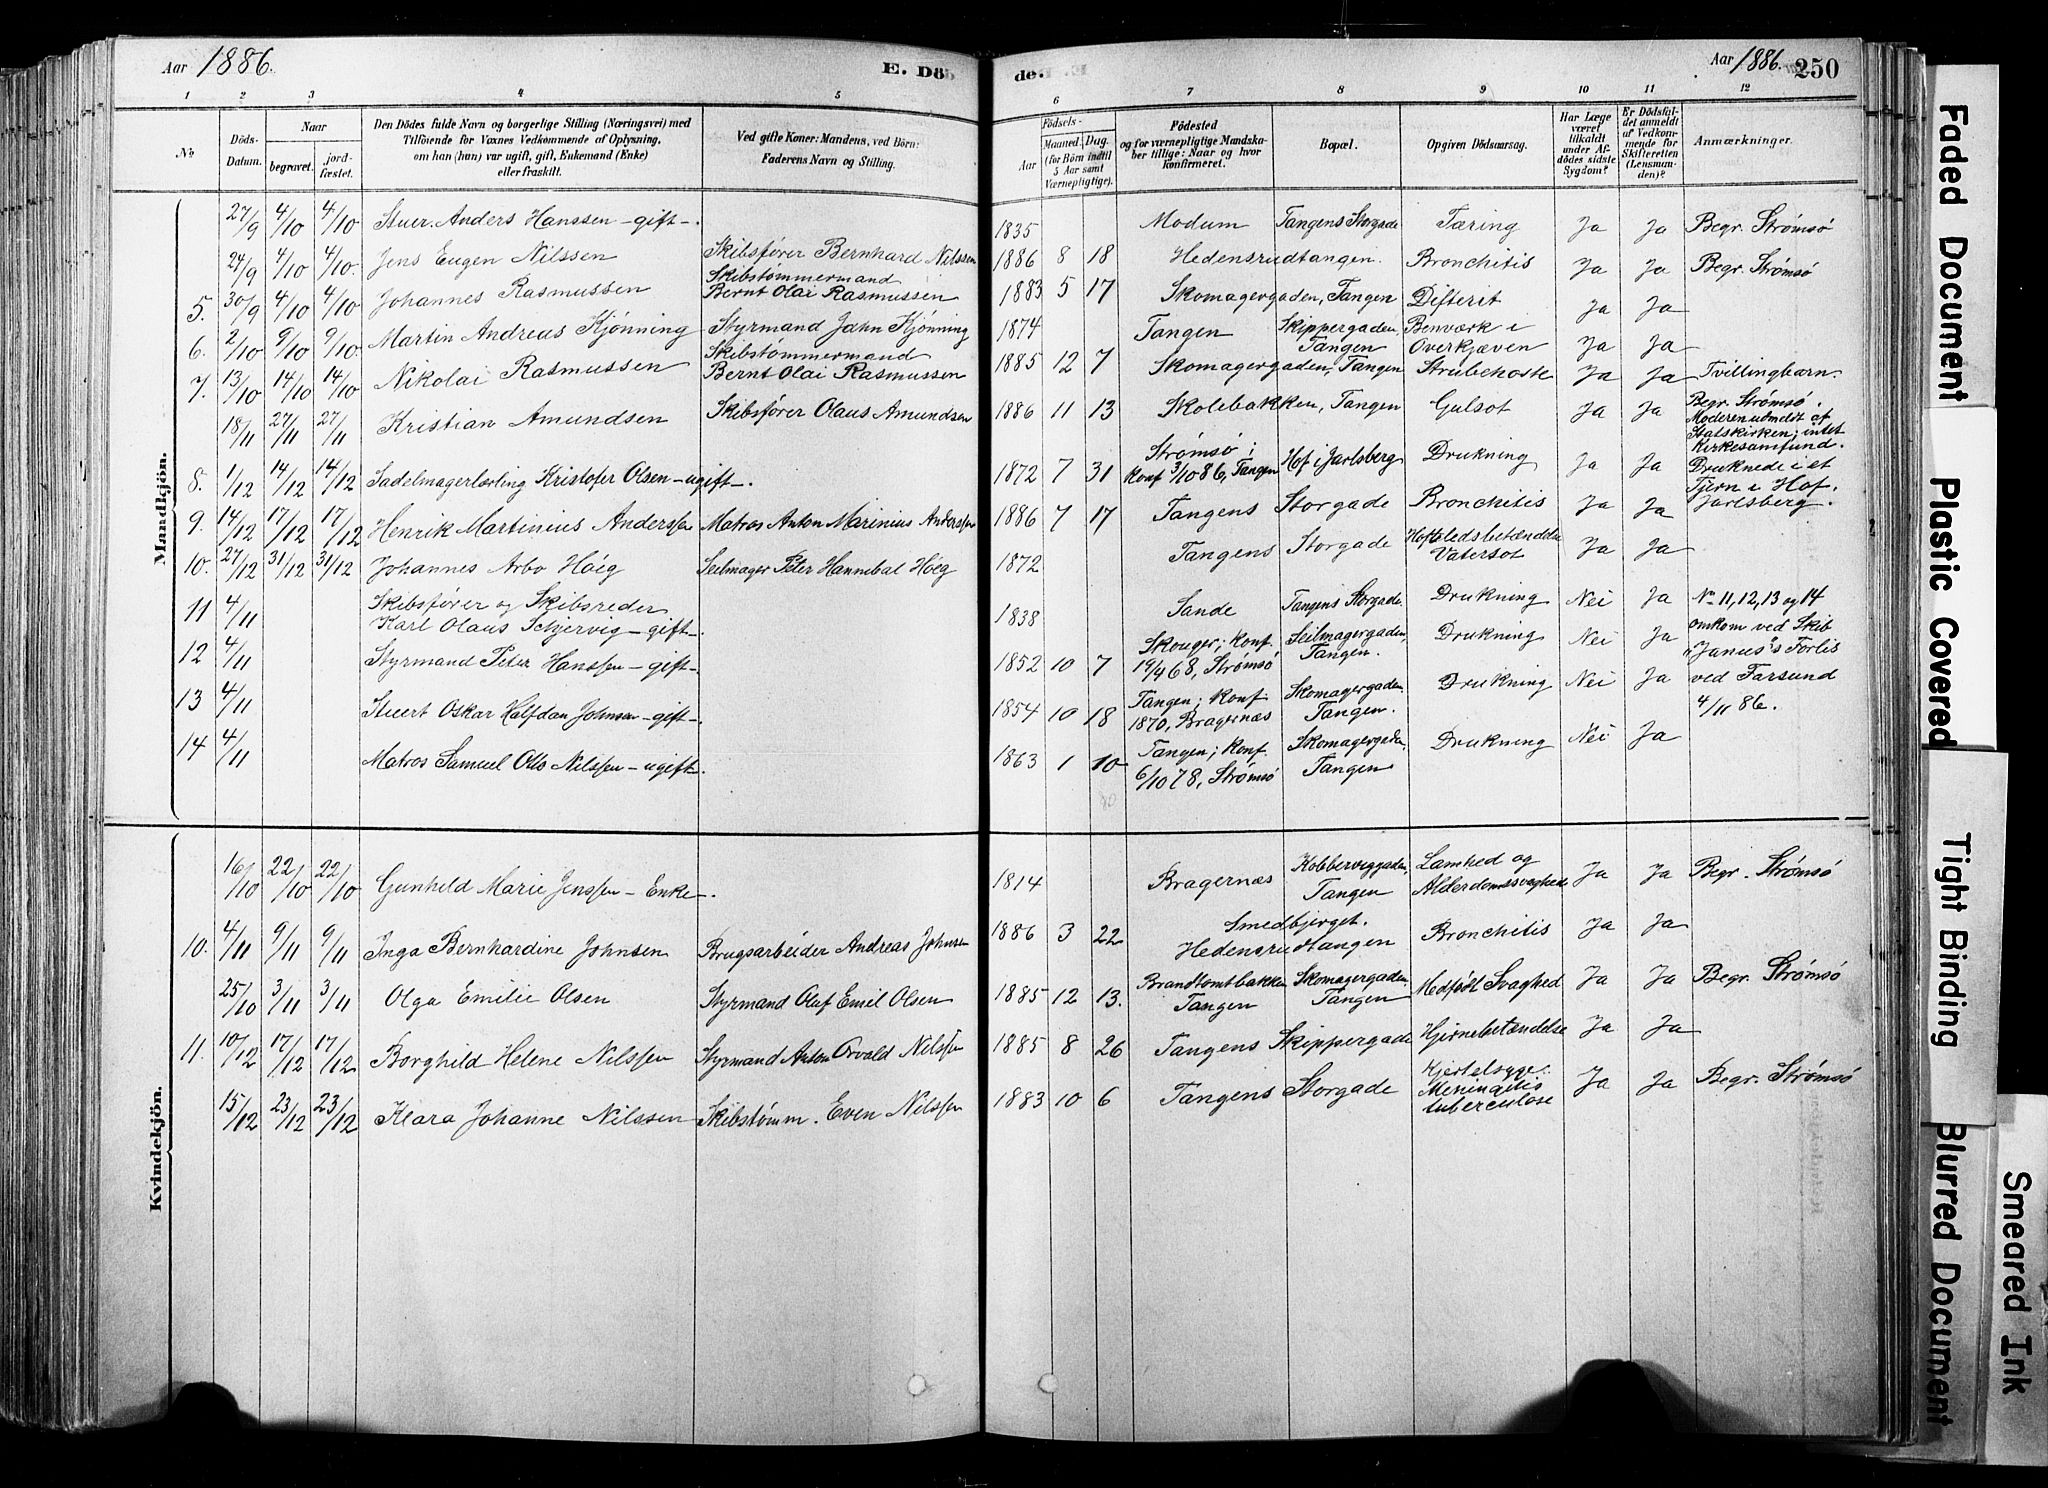 Aar 1886.
E. Dö
de.
Aar 1886. 250
1 2 3 4 5 6 7 8 9 10 11 12
No.
Döds-Datum.
Naar
begravet.
jord-fæstet.
Den Dödes fulde Navn og borgerlige Stilling (Næringsvei) med
Tilföiende for Voxnes Vedkommende af Oplysning,
om han (hun) var ugift, gift, Enkemand (Enke)
eller fraskilt.
Ved gifte Koner: Mandens, ved Börn:
Faderens Navn og Stilling.
Födsels-
Aar
Maaned. Dag.
(for Börn indtil
5 Aar samt
Værnepligtige).
Födested
og for værnepligtige Mandska-
ber tillige: Naar og hvor
konfirmeret.
Bopæl.
Opgiven Dödsaarsag.
Har Læge
været
tilkaldt
under Af-
dödes sidste
Sygdom?
Er Dödsfal-
det anmeldt
af Vedkom-
mende for
Skifteretten
(Lensman-
den)?
Anmærkninger.
Mandkjön.
27/9 4/10 4/10 Stuer. Anders Hanssen - gift -. 1835 Modum Tangens Storgade Tæring Ja Ja Begr. Strømsö
24/9 4/10 4/10. Jens Eugen Nilssen Skibsfører Bernhard Nilssen 1886 8 18 Hedensrudtangen. Bronchitis Ja Ja Begr. Strømsö
Skibstømmermand
5. 30/9 4/10 4/10 Johannes Rasmussen Bernt Olai Rasmussen 1883 5 17 Skomagergaden, Tangen Difterit Ja Ja
6. 2/10 9/10 9/10. Martin Andreas Kjønning Styrmand Jahn Kjønning 1874 Tangen Skippergaden, Tangen Benværk i Overkjæven Ja Ja
Skibstømmermand
7. 13/10 14/10 14/10 Nikolai Rasmussen Bernt Olai Rasmussen 1885 12 7 Skomagergaden, Tangen Strubehoste Ja Ja Tvillingbarn.
18/11 27/11 27/11 Kristian Amundsen Skibsfører Olaus Amundsen 1886 11 13 Skolebakken, Tangen Gulsot Ja Ja Begr. Strømsö.
Moderen udmeldt af
Statskirken; intet
Kirkesamfund.
8. 1/12 14/12 14/12 Sadelmagerlærling Kristofer Olsen - ugift -. 1872 7 31 Strømsö; Konf 3/10 86, Tangen Hof i Jarlsberg Drukning Ja Ja Druknede i et
Tjern i Hof,
Jarlsberg.
9. 14/12 17/12 17/12 Henrik Martinius Anderssen Matros Anton Marinius Anderssen 1886 7 17 Tangens Storgade Bronchitis Ja Ja
10. 27/12 31/12 31/12 Johannes Arbo Höeg Seilmager Peter Hannibal Höeg 1872 Tangens Storgade Hofteledsbetændelse Vatersot Ja Ja
11 4/11 Skibsfører og Skibsreder
Karl Olaus Schjervig - gift -. 1838 Sande Tangens Storgade. Drukning Nei Ja No 11, 12, 13 og 14
12 4/11 Styrmand Peter Hanssen - gift -. 1852 10 7 Skouger; Konf. 19/4 68, Strømsö Seilmagergaden, Tangen. Drukning Nei Ja omkom ved Skib
"Janus"s Forlis
13 4/11 Stuert Oskar Halfdan Johnsen - gift -. 1854 10 18 Tangen; Konf 1870, Bragernæs Skomagergaden, Tangen. Drukning Nei Ja ved Farsund
4/11 86.
14 4/11 Matros Samuel Otto Nilssen - ugift. 1863 1 10 Tangen; Konf. 6/10 78, Strømsö Skomagergaden, Tangen Drukning Nei Ja
Kvindekjön.
16/10 22/10 22/10 Gunhild Marie Jenssen - Enke -. 1814 Bragernæs Kobberviggaden, Tangen Lamhed og Alderdomssvaghed Ja Ja Begr. Strømsö
10. 4/11 9/11 9/11 Inga Bernhardine Johnsen Brugsarbeider Andreas Johnsen 1886 3 22 Smedbjerget. Hedensrudtangen Bronchitis Ja Ja
25/10 3/11 3/11 Olga Emilie Olsen Styrmand Oluf Emil Olsen 1885 12 13. Brandtomtbakken Tangen Skomagergaden, Tangen Medfödt Svaghed Ja Ja Begr. Strømsö
11. 10/12 17/12 17/12 Borghild Helene Nilssen Styrmand Anton Orvald Nilssen 1885 8 26 Tangens Skippergade Hjernebetændelse Ja Ja
15/12 23/12 23/12 Klara Johanne Nilssen Skibstømm. Even Nilssen 1883 10 6 Tangens Storgade Kjertelsyge. Meningitis tuberculose Ja Ja Begr. Strømsö
Faded Document
Plastic Covered
Tight Binding
Blurred Document
Smeared Ink